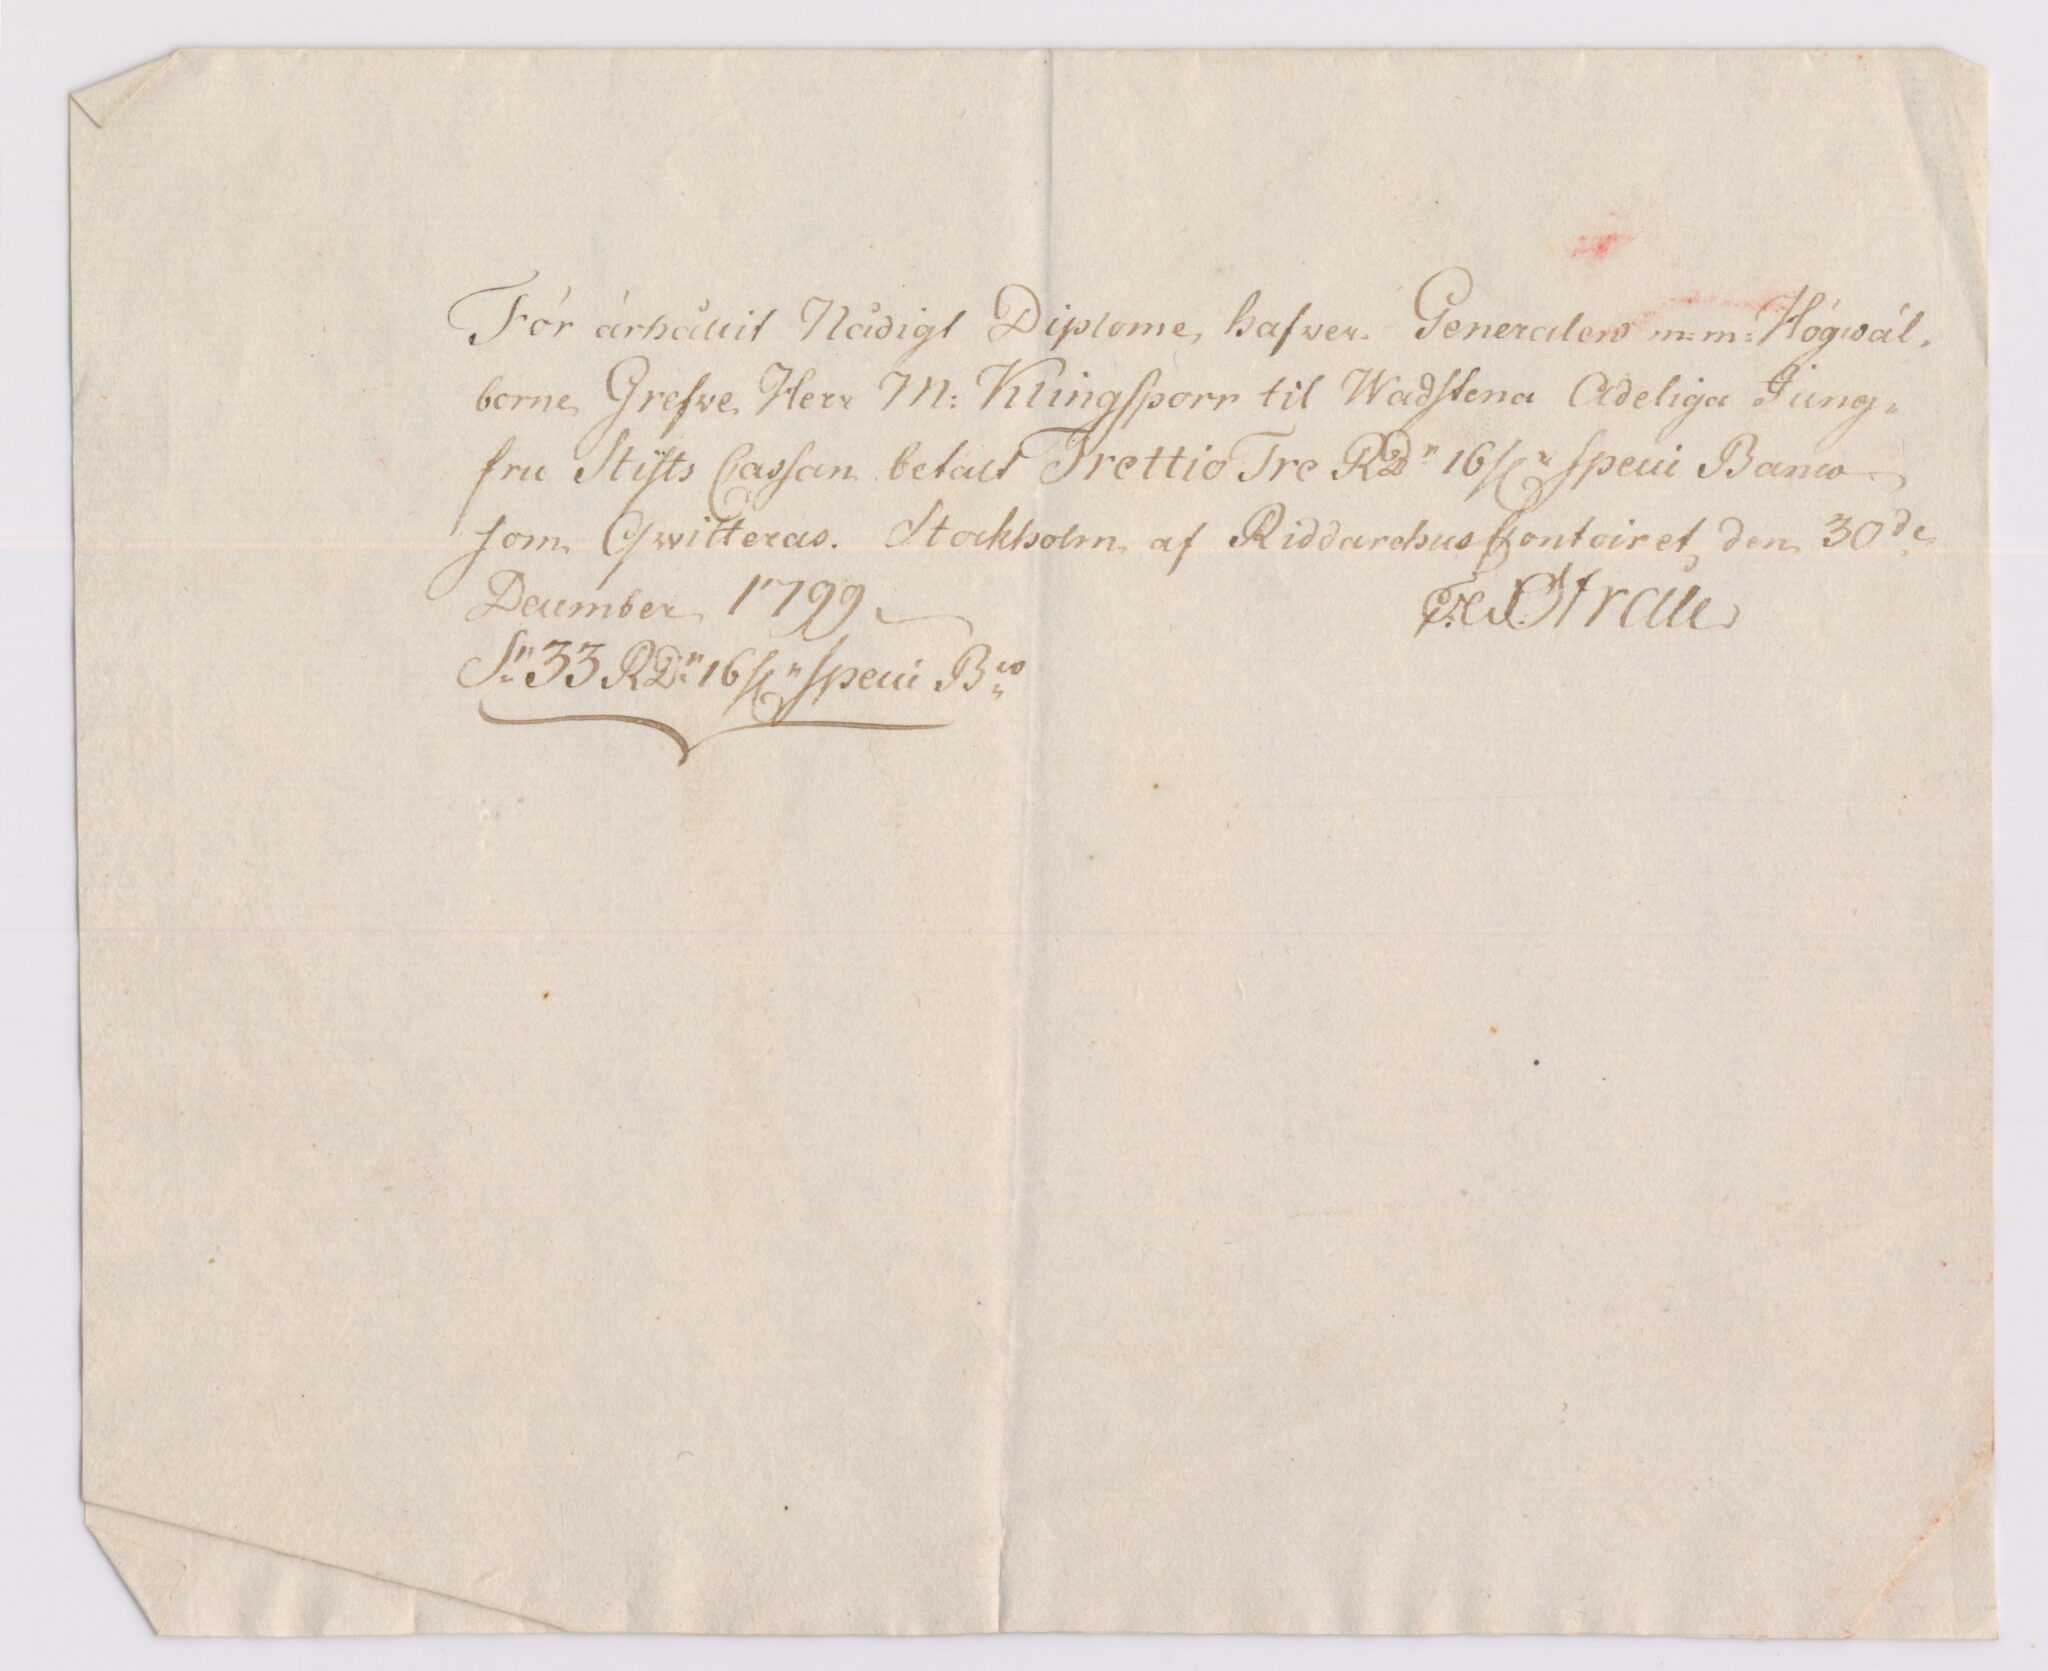 För ärhållit Nådigt Diplome, hafver Generalen m: m: Högwäl-
borne Grefve Herr M: Klingsporr til Wadstena Adeliga Jung-
fru Stifts Cassan betalt Trettio Tre RDr 16 sk:r Specie Banco
som qwitteras. Stockholm af Riddarehus Contoiret den 30de
December 1799
Sn 33 RDr 16 sk:r Specie Bco